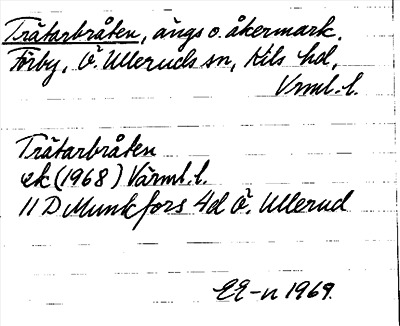 Trätarbråten, ängs o. åkermark.
Förby, Ö. Ulleruds sn, Kils hd,
Vrml. l.
Trätarbråten
ek (1968) Värml. l.
11 D Munkfors 4d Ö. Ullerud
EE-n 1969.